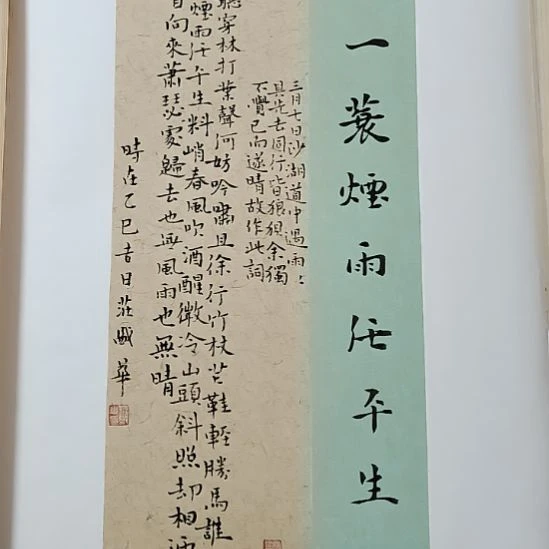 一蓑煙雨任平生
三月七日沙湖道中遇雨〻
具先去同行皆狼狽余獨
不覺已而遂晴故作此詞
聽穿林打葉聲何妨吟嘯且徐行竹杖芒鞋輕勝馬誰
煙雨任平生料峭春風吹酒醒微冷山頭斜照却相迎
首向來蕭瑟處歸去也無風雨也無晴
時在乙巳吉日莊華